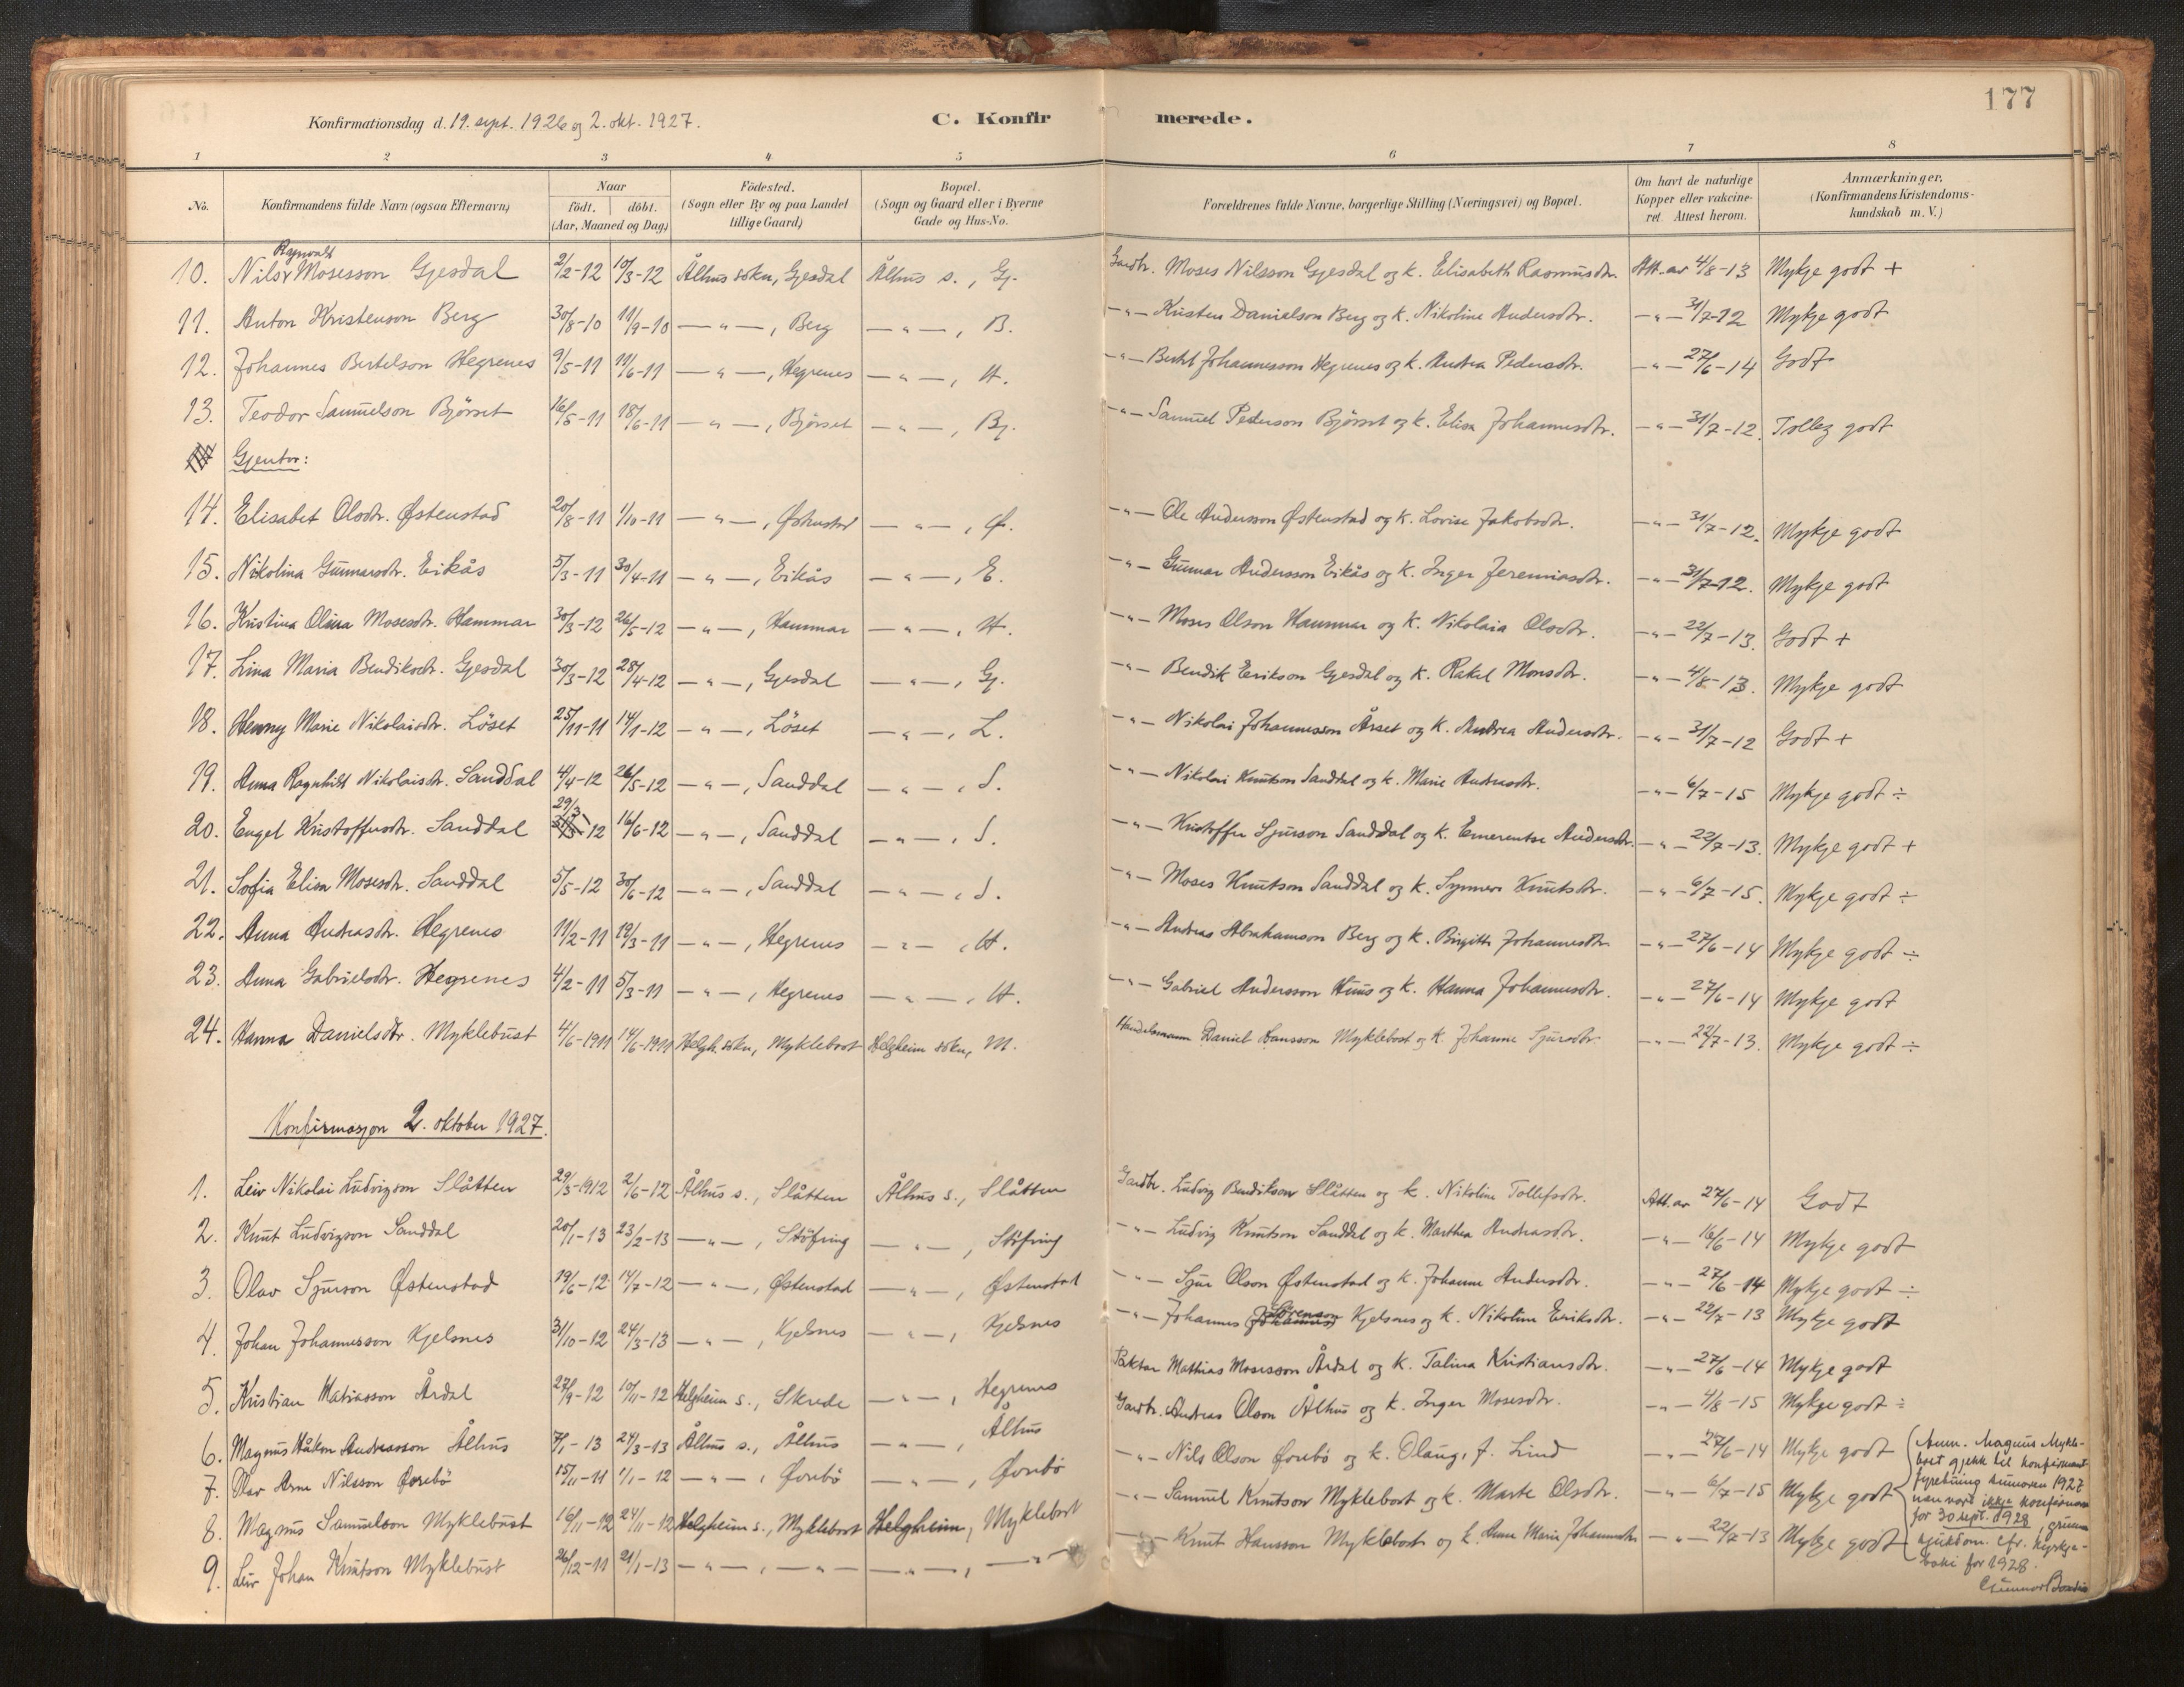 177
Konfirmationsdag d. 19. sept. 1926 og 2. okt. 1927.
C. Konfirmerede.
1 2 3 4 5 6 7 8
No.
Konfirmandens fulde Navn (ogsaa Efternavn)
Naar
födt. döbt.
(Aar, Maaned og Dag)
Födested.
(Sogn eller By og paa Landet
tillige Gaard)
Bopæl.
(Sogn og Gaard eller i Byerne
Gade og Hus-No.
Forældrenes fulde Navne, borgerlige Stilling (Næringsvei) og Bopæl.
Om havt de naturlige
Kopper eller vakcine-
ret. Attest herom.
Anmærkninger,
(Konfirmandens Kristendoms-
kundskab m. V.)
10. Nils Mosesson Gjesdal 2/2-12 10/3-12 Ålhus sokn, Gjesdal Ålhus s., Gj. Gardbr. Moses Nilsson Gjesdal og k. Elisabeth Rasmusdtr. Att. av 4/8-13 Mykje godt +
11. Anton Kristenson Berg 30/8-10 11/9-10 —"—, Berg —"—, B. —"— Kristen Danielson Berg og k. Nikoline Andersdtr. —"— 31/7-12 Mykje godt
12. Johannes Bertelson Hegrenes 9/5-11 11/6-11 —"—, Hegrenes —"—, H. —"— Bertel Johannesson Hegrenes og k. Andrea Pedersdtr. —"— 27/6-14 Godt
13. Teodor Samuelson Bjørset 16/5-11 18/6-11 —"—, Bjørset —"—, Bj. —"— Samuel Pederson Bjørset og k. Elisa Johannesdtr. —"— 31/7-12. Tolleg godt
Gjentor:
14. Elisabet Olsdtr. Østenstad 20/8-11 1/10-11 —"—, Østenstad —"—, Ø. —"— Ole Andersson Østenstad og k. Lovise Jakobsdtr. —"— 31/7-12. Mykje godt
15. Nikolina Gunnarsdtr. Eikås 5/3-11 30/4-11 —"—, Eikås —"—, E. —"— Gunnar Andersson Eikås og k. Inger Jeremiasdtr. —"— 31/7-12. Mykje godt
16. Kristina Olina Mosesdtr. Hammar 30/3-12 26/5-12 —"—, Hammar —"—, H. —"— Moses Olson Hammar og k. Nikolaia Olsdtr. —"— 22/7-13. Godt +
17. Lina Maria Bendiksdtr. Gjesdal 30/3-12 28/4-12 —"—, Gjesdal —"—, Gj. —"— Bendik Erikson Gjesdal og k. Rakel Monsdtr. —"— 4/8-13. Mykje godt
18. Henny Marie Nikolaisdtr. Löset 25/11-11 14/1-12 —"—, Löset —"—, L. —"— Nikolai Johannesson Årset og k. Andrea Andersdtr. —"— 31/7-12 Godt +
19. Anna Ragnhild Nikolaisdtr. Sanddal 4/4-12 26/5-12 —"—, Sanddal —"—, S. —"— Nikolai Knutson Sanddal og k. Marie Andreasdtr. —"— 6/7-15 Mykje godt ÷
20. Engel Kristoffersdtr. Sanddal 29/3-12 16/6-12 —"—, Sanddal —"—, S. —"— Kristoffer Sjurson Sanddal og k. Emerentse Andersdtr. —"— 22/7-13. Mykje godt +
21. Sofia Elisa Mosesdtr. Sanddal 5/5-12 30/6-12 —"—, Sanddal —"—, S. —"— Moses Knutson Sanddal og k. Synneve Knutsdtr. —"— 6/7-15. Mykje godt ÷
22. Anna Andreasdtr. Hegrenes 11/2-11 19/3-11 —"—, Hegrenes —"—, H. —"— Andreas Abrahamson Berg og k. Birgitte Johannesdtr. —"— 27/6-14 Mykje godt ÷
23. Anna Gabrielsdtr. Hegrenes 4/2-11 5/3-11 —"—, Hegrenes —"—, H. —"— Gabriel Andersson Huus og k. Hanna Johannesdtr. —"— 27/6-14 Mykje godt
24. Hanna Danielsdtr. Myklebust 4/6-1911 14/6-1911 Helgh. sokn, Myklebost Helgheim sokn, M. Handelsmann Daniel Hansson Myklebost og k. Johanne Sjursdtr. —"— 22/7-13. Mykje godt ÷
Konfirmasjon 2. oktober 1927.
1. Leiv Nikolai Ludvigson Slåtten 29/3-1912 2/6-12 Ålhus s., Slåtten Ålhus s., Slåtten Gardbr. Ludvig Bendikson Slåtten og k. Nikoline Tollefsdtr. Att. av 27/6-14 Godt
2. Knut Ludvigson Sanddal 20/1-13 23/2-13 —"—, Støfring —"—, Støfring —"— Ludvig Knutson Sanddal og k. Marthea Andreasdtr. —"— 16/6-14 Mykje godt
3. Olav Sjurson Østenstad 19/6-12 14/7-12 —"—, Østenstad —"—, Østenstad —"— Sjur Olson Østenstad og k. Johanne Andersdtr. —"— 27/6-14 Mykje godt ÷
4. Johan Johannesson Kjelsnes 31/10-12 24/3-13 —"—, Kjelsnes —"—, Kjelsnes —"— Johannes Sørenson Kjelsnes og k. Nikoline Eriksdtr. —"— 22/7-13 Mykje godt
5. Kristian Matiasson Årdal 27/9-12 10/11-12 Helgheim s., Skrede —"—, Hegrenes Paktar Mathias Mosesson Årdal og k. Talina Kristiansdtr. —"— 27/6-14 Mykje godt
6. Magnus Håkon Andreasson Ålhus 7/1-13 24/3-13 Ålhus s., Ålhus —"—, Ålhus Gardbr. Andreas Olson Ålhus og k. Inger Mosesdtr. —"— 4/8-15 Mykje godt ÷
7. Olav Arne Nilsson Øvrebö 15/11-11 1/1-12 —"—, Øvrebö —"—, Øvrebö —"— Nils Olson Øvrebö og k. Olaug, f. Lind —"— 27/6-14 Mykje godt
8. Magnus Samuelson Myklebust 16/11-12 24/11-12 Helgheim s., Myklebost Helgheim, Myklebost —"— Samuel Knutson Myklebost og k. Marte Olsdtr. —"— 6/7-15 Mykje godt
9. Leiv Johan Knutson Myklebust 26/12-11 21/1-13 —"—, —"— —"—, —"— —"— Knut Hansson Myklebost og k. Anne Marie Johannesdtr —"— 22/7-13 Mykje godt
Anm. Magnus Mykle-
bost gjekk til konfirmant
fyrebuing sumaren 1927
men vart ikkje konfirmera
før 30 sept. 1928, grunna
sjukdom. cfr. kyrkje-
boki for 1928.
Gunnar